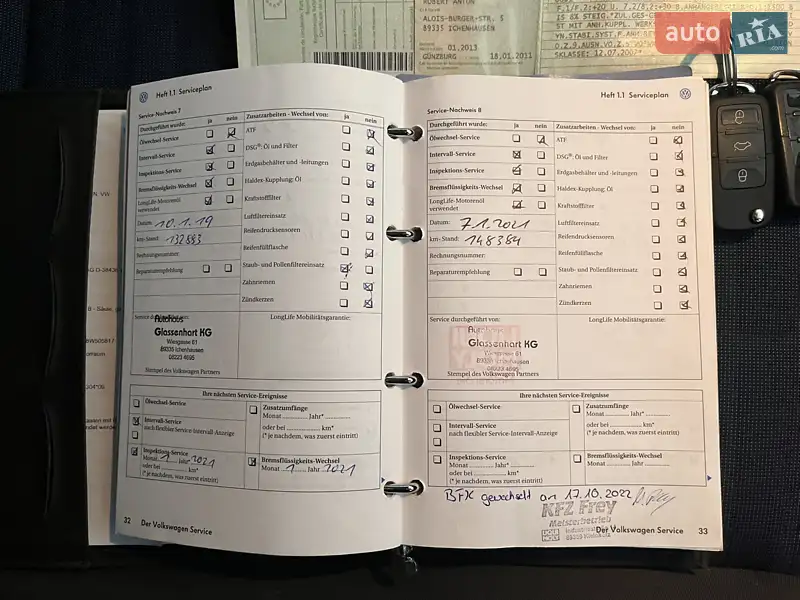 ROBERT ANTON
ALOIS-BURGER-STR. 5
89335 ICHENHAUSEN
01.2013
GÜNZBURG 18.01.2011
auto RIA
Heft 1.1 Serviceplan
Service-Nachweis 7
Durchgeführt wurde: ja nein Zusatzarbeiten - Wechsel von: ja nein
Ölwechsel-Service ATF
Intervall-Service DSG®: Öl und Filter
Inspektions-Service Erdgasbehälter und -leitungen
Bremsflüssigkeits-Wechsel Haldex-Kupplung: Öl
LongLife-Motorenöl verwendet Kraftstofffilter
Datum: 10.1.19 Luftfiltereinsatz
km-Stand: 132883 Reifendrucksensoren
Rechnungsnummer: Reifenfüllflasche
Reparaturempfehlung Staub- und Pollenfiltereinsatz
Zahnriemen
Zündkerzen
Service durchgeführt von: LongLife Mobilitätsgarantie:
Autohaus
Glassenhart KG
89335 Ichenhausen
08223 4695
Stempel des Volkswagen Partners
Ihre nächsten Service-Ereignisse
Ölwechsel-Service Zusatzumfänge
Monat Jahr*
Intervall-Service oder bei km*
nach flexibler Service-Intervall-Anzeige (* je nachdem, was zuerst eintritt)
Inspektions-Service Bremsflüssigkeits-Wechsel
Monat 1 Jahr* 2021 Monat 1 Jahr 2021
oder bei km*
(* je nachdem, was zuerst eintritt)
32 Der Volkswagen Service
Heft 1.1 Serviceplan
Service-Nachweis 8
Durchgeführt wurde: ja nein Zusatzarbeiten - Wechsel von: ja nein
Ölwechsel-Service ATF
Intervall-Service DSG®: Öl und Filter
Inspektions-Service Erdgasbehälter und -leitungen
Bremsflüssigkeits-Wechsel Haldex-Kupplung: Öl
LongLife-Motorenöl verwendet Kraftstofffilter
Datum: 7.1.2021 Luftfiltereinsatz
km-Stand: 148384 Reifendrucksensoren
Rechnungsnummer: Reifenfüllflasche
Reparaturempfehlung Staub- und Pollenfiltereinsatz
Zahnriemen
Zündkerzen
Service durchgeführt von: LongLife Mobilitätsgarantie:
Autohaus
Glassenhart KG
89335 Ichenhausen
08223 4695
Stempel des Volkswagen Partners
Ihre nächsten Service-Ereignisse
Ölwechsel-Service Zusatzumfänge
Monat Jahr*
Intervall-Service oder bei km*
nach flexibler Service-Intervall-Anzeige (* je nachdem, was zuerst eintritt)
Inspektions-Service Bremsflüssigkeits-Wechsel
Monat Jahr* Monat Jahr
oder bei km*
(* je nachdem, was zuerst eintritt)
BFK gewechselt am 17.10.2022
KFZ Frey
Meisterbetrieb
Der Volkswagen Service 33